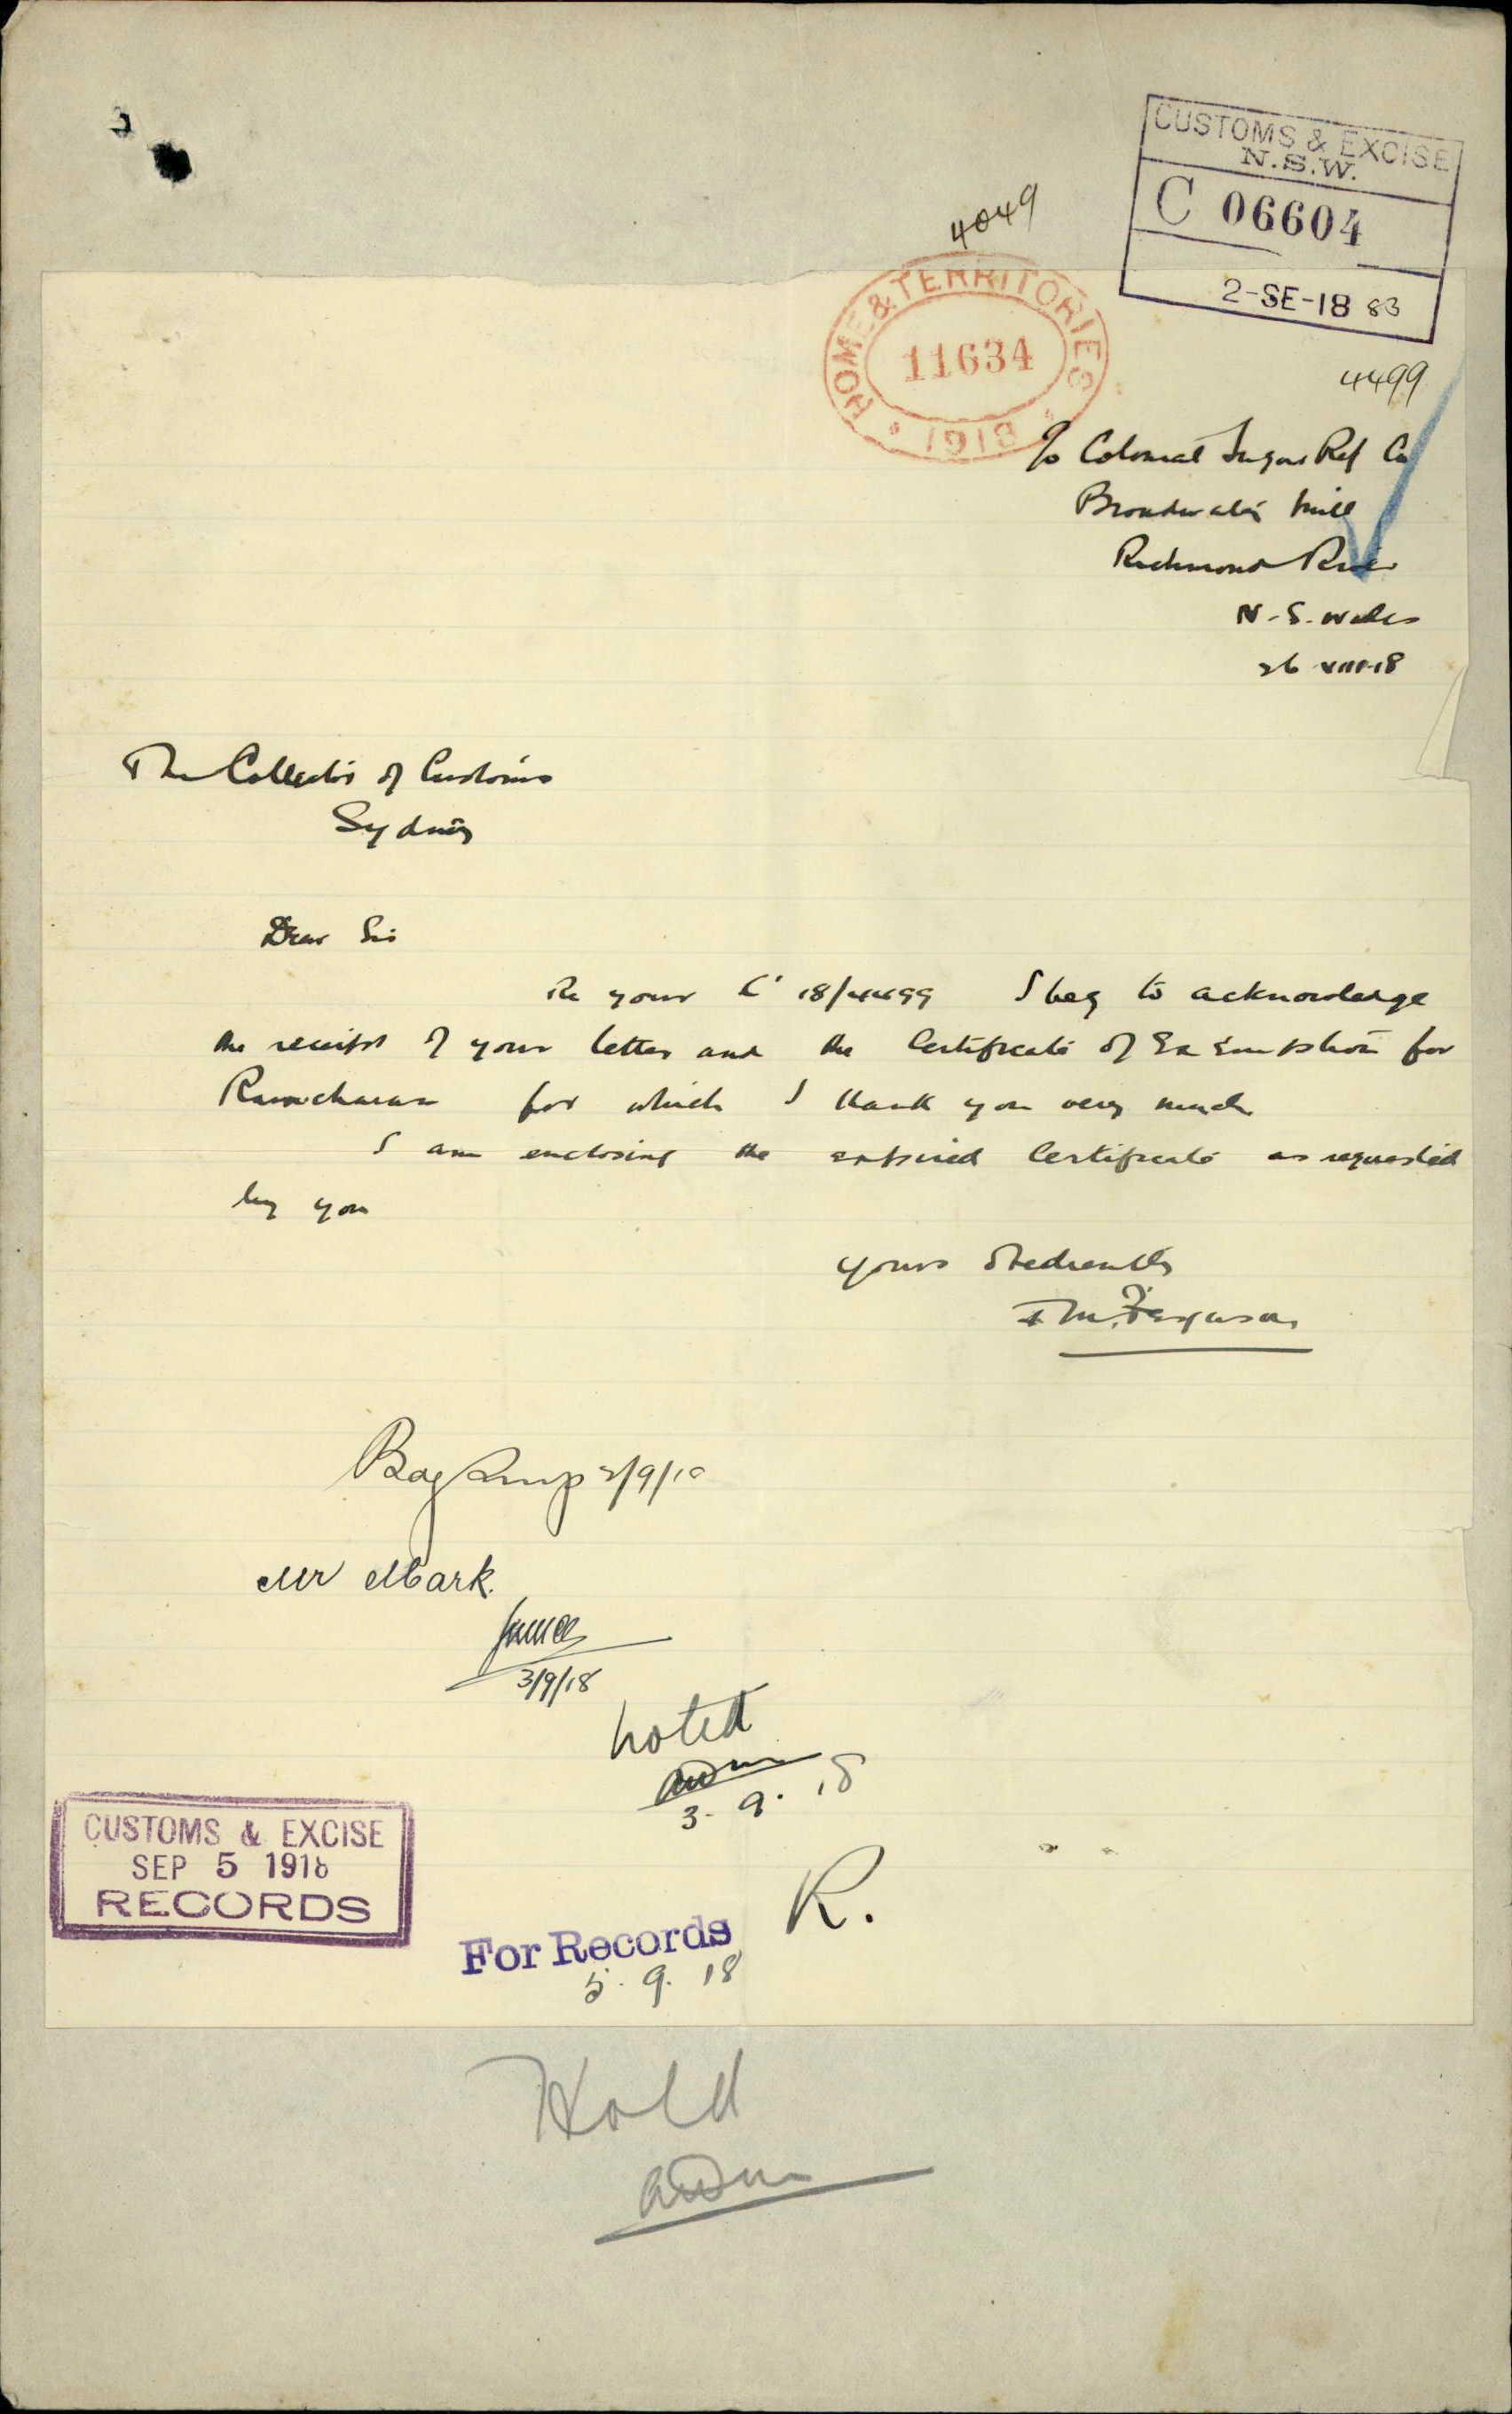 CUSTOMS & EXCISE
N.S.W.
C 06604
2-SE-18 83
4049
HOME & TERRITORIES
11634
1918
4499
c/o Colonial Sugar Ref Co
Broadwater Mill
Richmond River
N.S. Wales
26 VIII-18
The Collector of Customs
Sydney
Dear Sir
Re your C 18/4499 I beg to acknowledge
the receipt of your letter and the Certificate of Exemption for
Ramcharan for which I thank you very much
I am enclosing the expired Certificate as requested
by you
Yours obediently
Ferguson
2/9/18
Mr Mark.
3/9/18
Noted
3. 9. 18
CUSTOMS & EXCISE
SEP 5 1918
RECORDS
R.
For Records
5. 9. 18
Hold